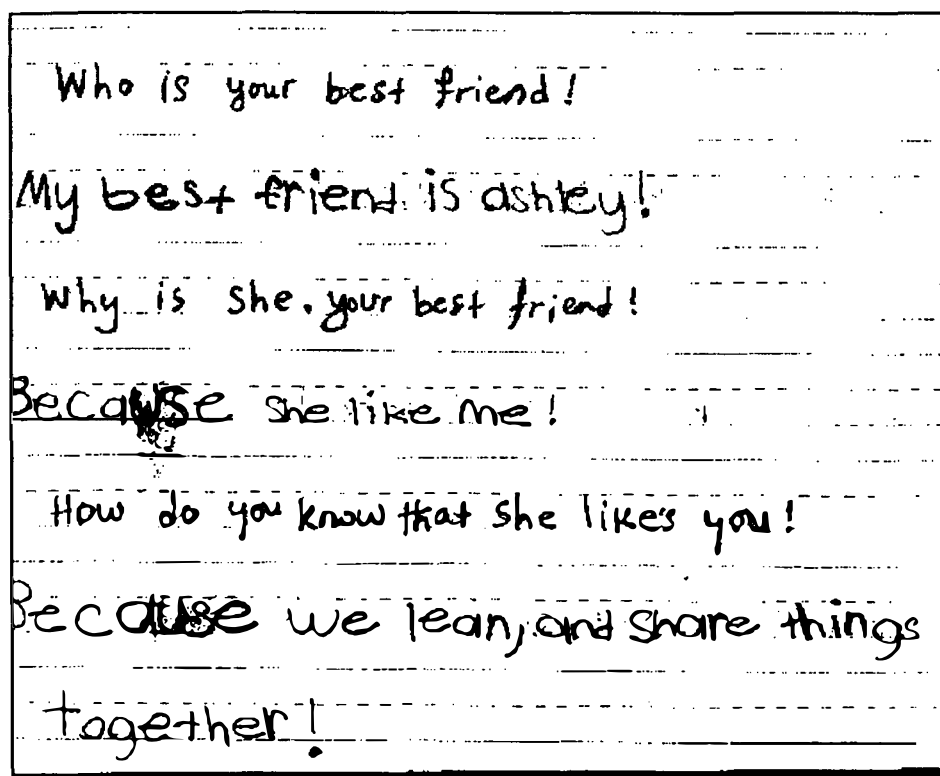 Who is your best friend!
My best friend is ashley!
Why is she. your best friend!
Because she like me!
How do you know that she likes you!
Because we lean, and share things
together!